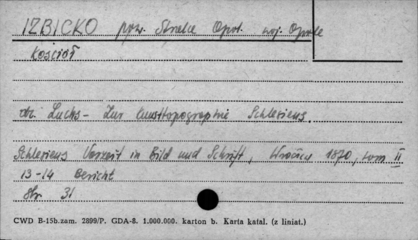 IZBICKO pow. Strzelce Opol. woj. Opole
Kościół
dr. Luchs - Zur Kunsttopographie Schlesiens.
Schlesiens Vorzeit in Bild und Schrift, Wrocław 1870, tom II
13-14 Bericht
Str 31
CWD B-15b. zam. 2899/P. GDA-8. 1.000.000. karton b. Karta katal. (z liniat.)